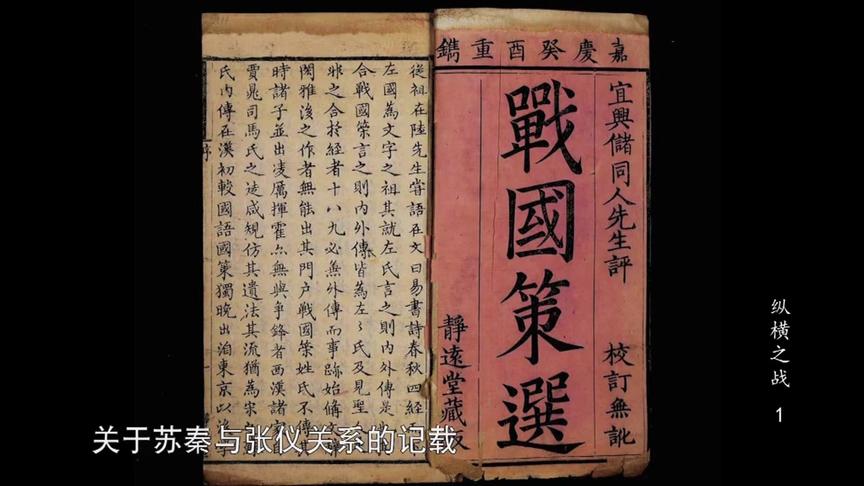 嘉慶癸酉重鐫
宜興儲同人先生評 校訂無訛
戰國策選
靜遠堂藏
從祖在陸先生嘗語在文曰易書詩春秋四經
左國為文字之祖其就左氏言之則內外傳是
合戰國策言之則內外傳皆為左氏及見聖
之合於經者十八九必無外傳而事跡始備文
閎雅後之作者無能出其門戶戰國策姓氏不傳其
時諸子並出凌厲揮霍尓無與爭鋒者西漢諸
賈晁司馬氏之徒咸規仿其遺法其流猶為宋
氏內傳在漢初較國語國策獨晚出洎東京以
序
纵横之战 1
关于苏秦与张仪关系的记载